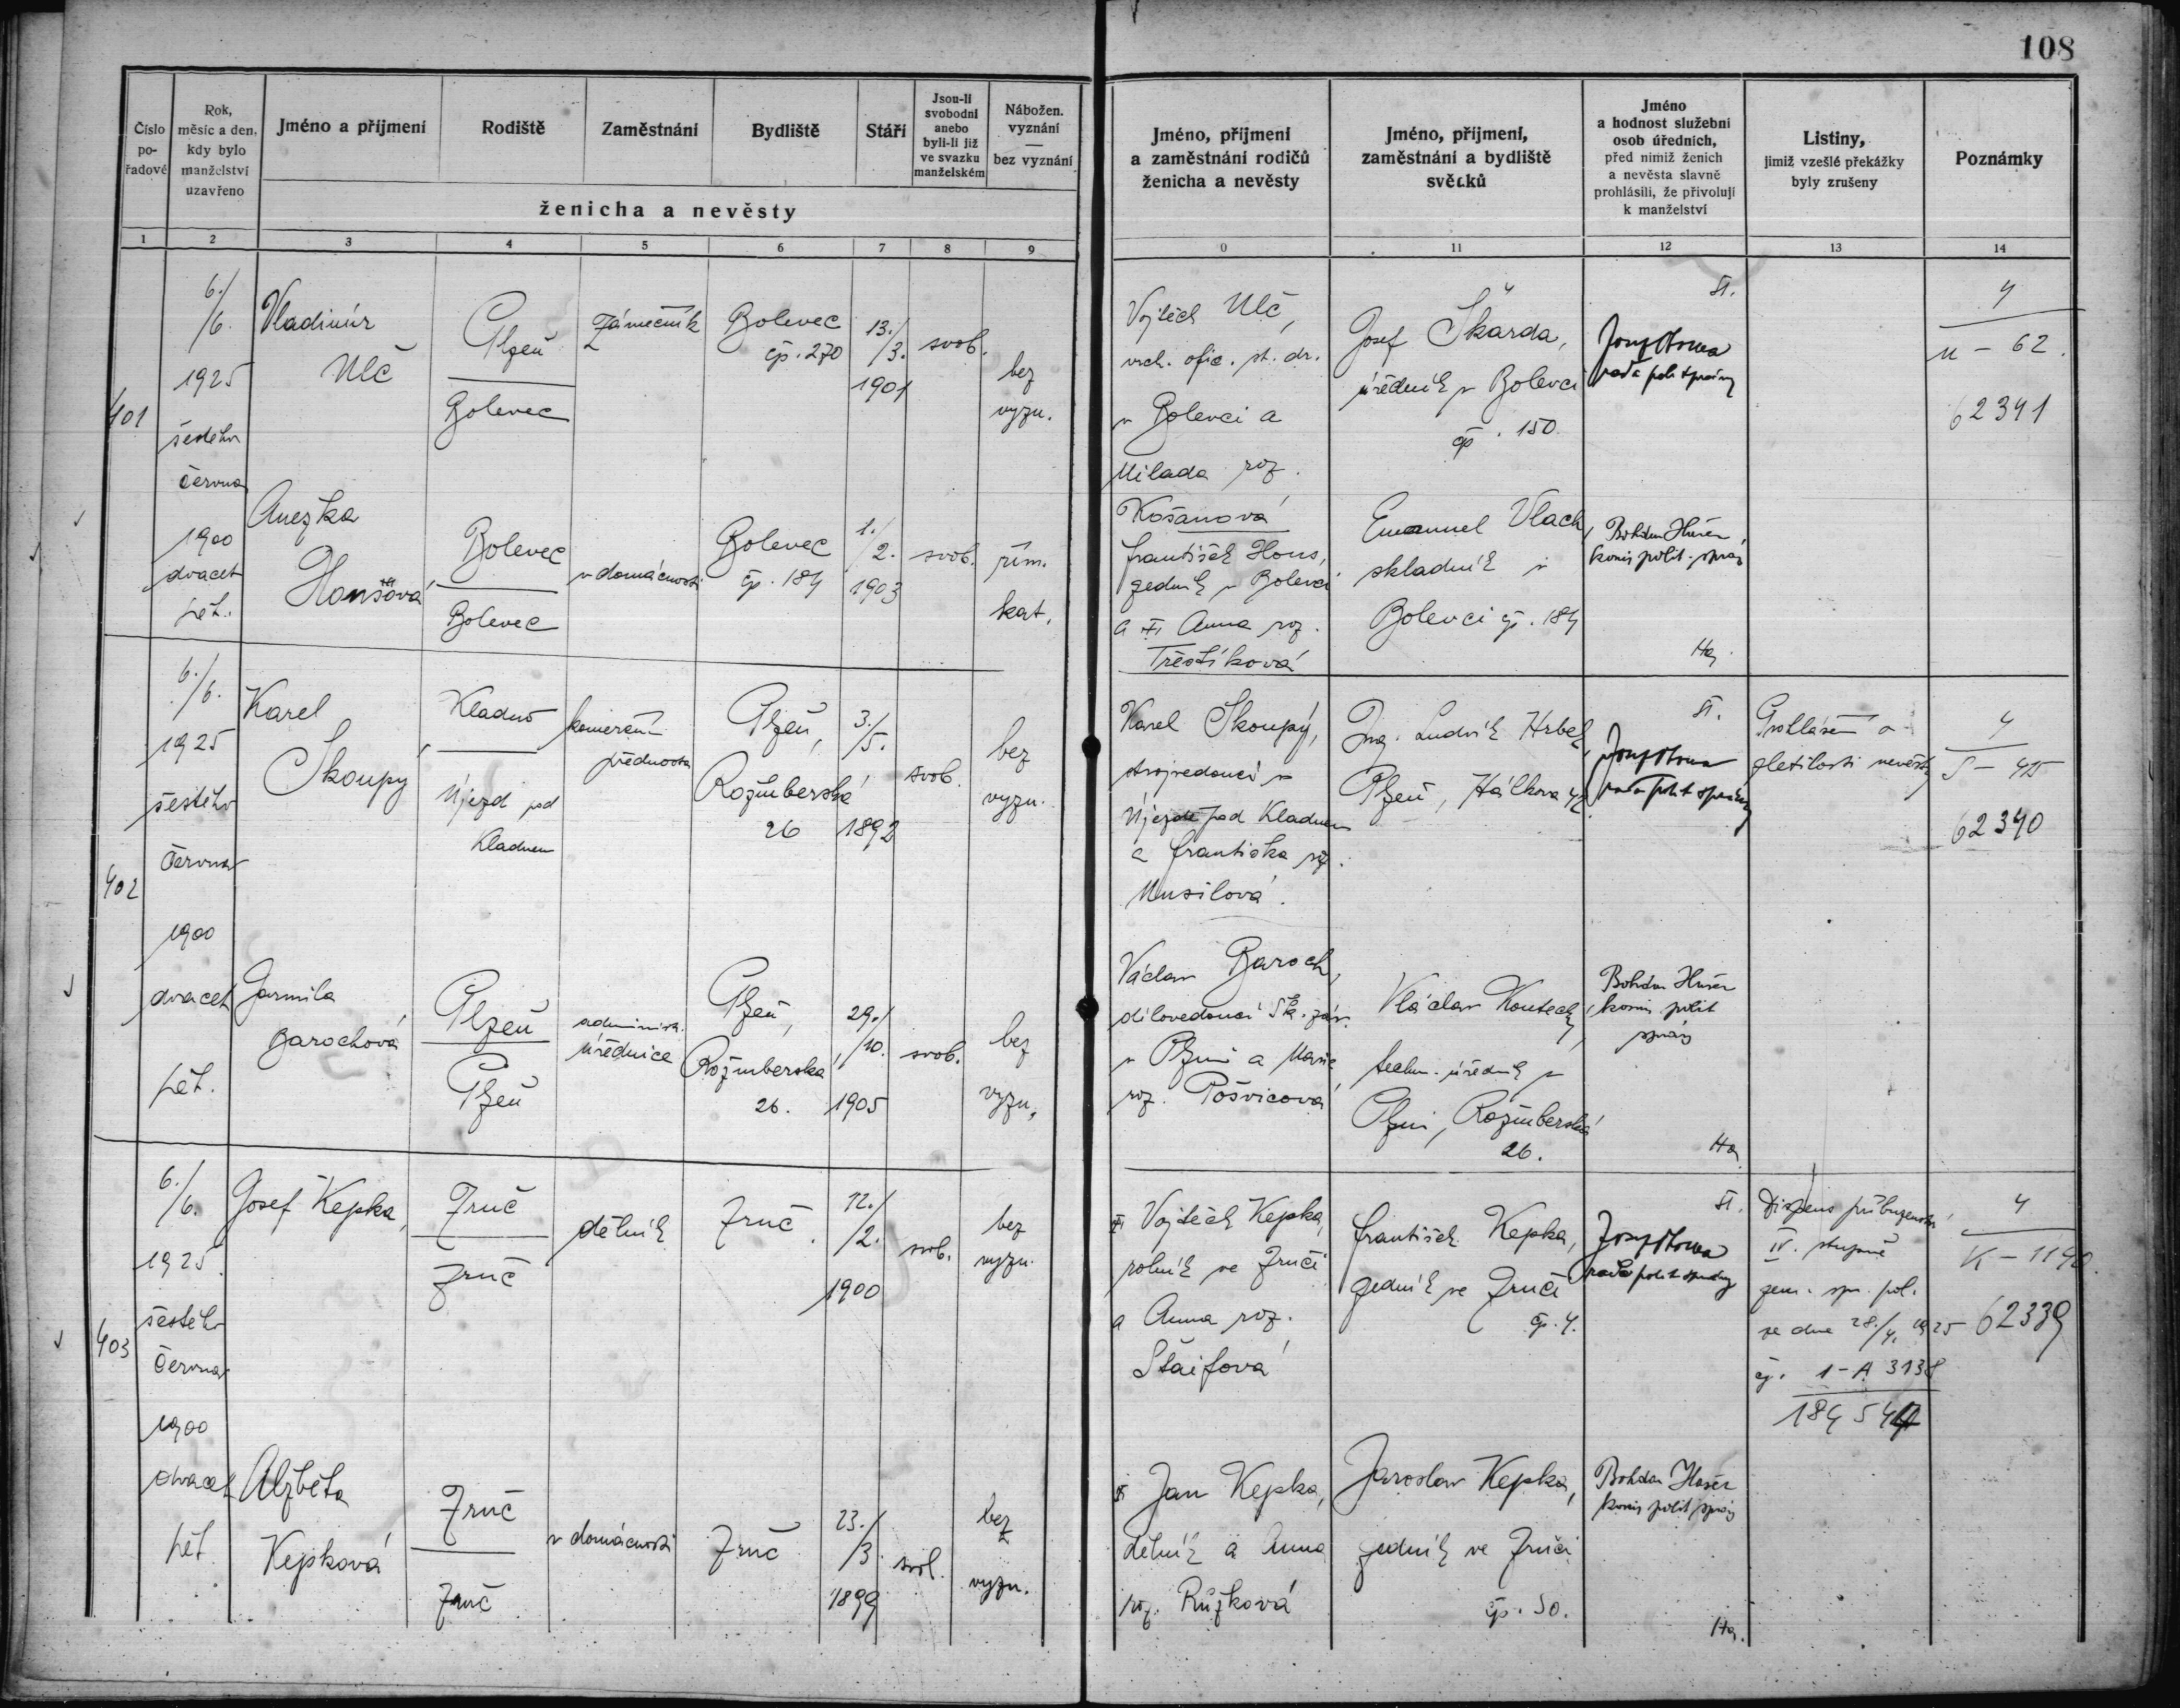 108
Číslo pořadové
Rok, měsíc a den, kdy bylo manželství uzavřeno
Jméno a příjmení
Rodiště
Zaměstnání
Bydliště
Stáří
Jsou-li svobodni anebo byli-li již ve svazku manželském
Nábožen. vyznání — bez vyznání
ženicha a nevěsty
Jméno, příjmení a zaměstnání rodičů ženicha a nevěsty
Jméno, příjmení, zaměstnání a bydliště svědků
Jméno a hodnost služební osob úředních, před nimiž ženich a nevěsta slavně prohlásili, že přivolují k manželství
Listiny, jimiž vzešlé překážky byly zrušeny
Poznámky
1 2 3 4 5 6 7 8 9 0 11 12 13 14
401
6./6.
1925
šestého
června
1900
dvacet
pět.
Vladimír
Ulč
Plzeň
Bolevec
zámečník
Bolevec
čp. 270
13./3.
1901
svob.
bez
vyzn.
Vojtěch Ulč,
vrch. ofic. st. dr.
v Bolevci a
Milada roz.
Košanová
Josef Škarda,
úředník v Bolevci
čp. 150
rada polit správy
4
U - 62.
62341
Anežka
Honsová
Bolevec
Bolevec
v domácnosti
Bolevec
čp. 184
1./2.
1903
svob.
řím.
kat.
František Hons,
zedník v Bolevci
a Anna roz.
Třeštíková
Emanuel Vlach,
skladník v
Bolevci čp. 184
Bohdan
komis polit. správy
402
6./6.
1925
šestého
června
1900
dvacet
pět.
Karel
Skoupý,
Kladno
Újezd pod
Kladnem
komerční
přednosta
Plzeň,
Rožmberská
26
3./5.
1892
svob.
bez
vyzn.
Karel Skoupý,
strojvedoucí v
Újezdě pod Kladnem
a Františka roz.
Musilová.
Ing. Ludvík Hrbek,
Plzeň, Hálkova 42
rada polit správy
Prohlášení o
zletilosti nevěsty
4
S - 415
62340
Jarmila
Barochová
Plzeň
Plzeň
administr.
úřednice
Plzeň,
Rožmberská,
26.
29./10.
1905
svob.
bez
vyzn.
Václav Baroch,
dílovedoucí Šk. záv.
v Plzni a Marie
roz. Pošvicová
Václav Koutecký,
techn. úředník v
Plzni, Rožmberská
26.
Bohdan
komis polit
správy
403
6./6.
1925.
šestého
června
1900
dvacet
pět
Josef Kepka,
Zruč
Zruč
dělník
Zruč.
12./2.
1900
svob.
bez
vyzn.
Vojtěch Kepka,
rolník ve Zruči
a Anna roz.
Štaifová
František Kepka,
zedník ve Zruči
čp. 4.
rada polit správy
Dispens příbuzenství
IV. stupně
zem. spr. pol.
ze dne 28./4. 1925
čj. 1-A 3138
4
K - 1140.
62339
Alžběta
Kepková
Zruč
Zruč
v domácnosti
Zruč
23./3
1899
svob.
bez
vyzn.
Jan Kepka,
dělník a Anna
roz. Růžková
Jaroslav Kepka,
zedník ve Zruči
čp. 50.
Bohdan
komis polit správy